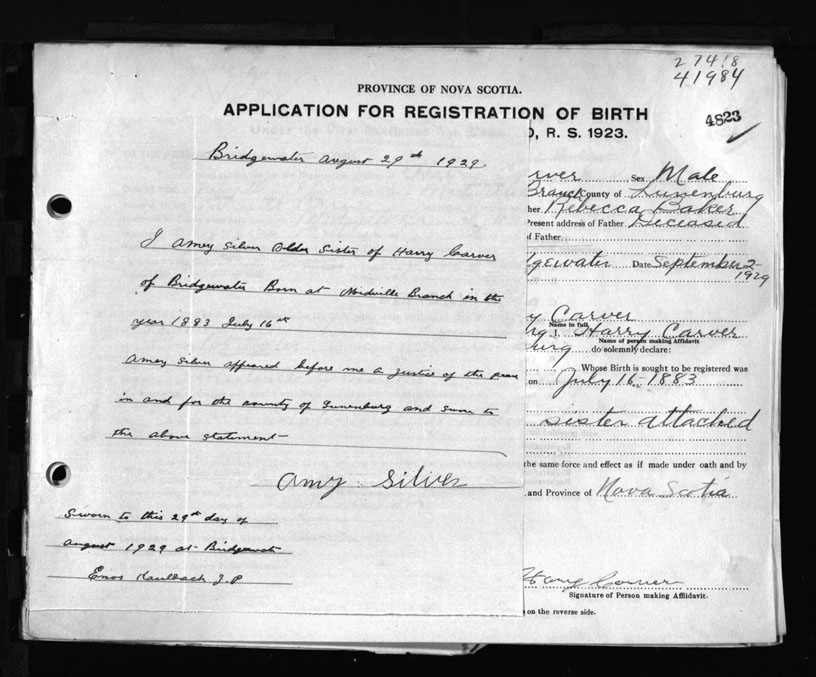 27418
41984
PROVINCE OF NOVA SCOTIA.
APPLICATION FOR REGISTRATION OF BIRTH
4823
, R. S. 1923.
Bridgewater August 29th 1929
I Amey Silver Older Sister of Harry Carver
of Bridgewater Born at Branch in the
year 1883 July 16th
Amey Silver appeared before me a Justice of the peace
in and for the county of Lunenburg and Sworn to
the above statement—
Amy Silver
Sworn to this 29th day of
August 1929 at Bridgewater
Enos Kaulback J.P
rver Sex Male
Branch County of Lunenburg
her Rebecca Baker
Present address of Father Deceased
of Father
dgewater Date September 2
1929
y Carver
Name in full
I, Harry Carver
Name of person making Affidavit
urg do solemnly declare:
Whose Birth is sought to be registered was
on July 16-1883
sister attached
the same force and effect as if made under oath and by
and Province of Nova Scotia
Harry Carver
Signature of Person making Affidavit.
on the reverse side.